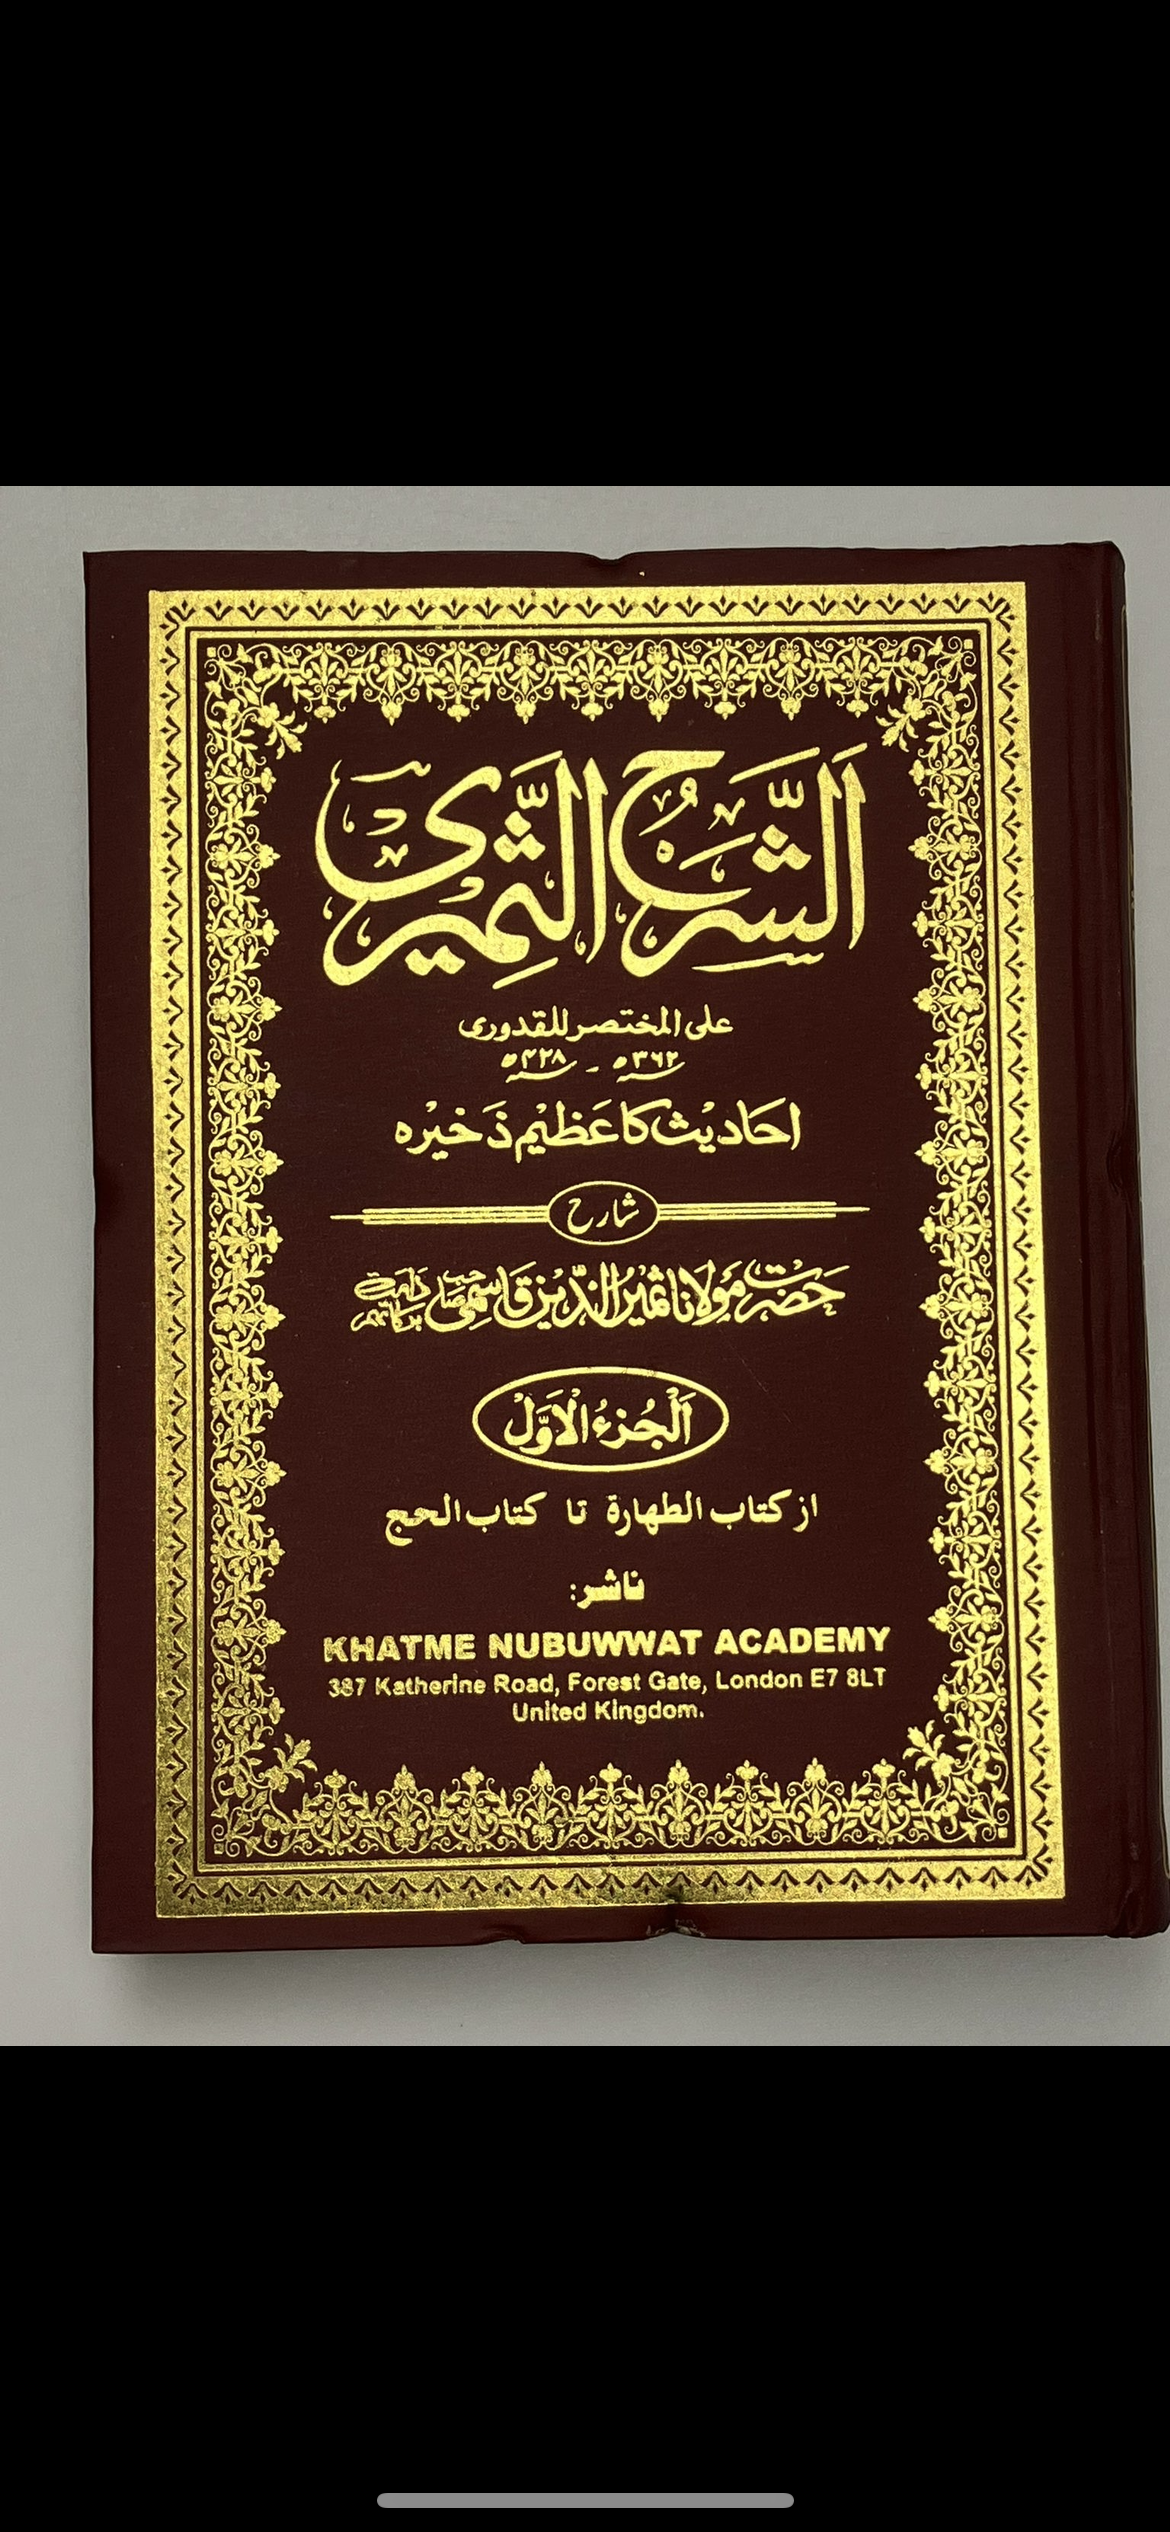 اَلشَّرْحُ الثَّمِيْرِى
على المختصر للقدورى
٣٦٢ھ - ٤٢٨ھ
احَادیْث کا عَظیْم ذَخیْرہ
شارح
حَضرتْ مَولانا ثمیرُ الدّیْن قَاسمِی صَاحب دَامَتْ بَرکاتہم
اَلْجُزءُ الْاَوَّلْ
از كتاب الطهارة تا كتاب الحج
ناشر:
KHATME NUBUWWAT ACADEMY
387 Katherine Road, Forest Gate, London E7 8LT
United Kingdom.